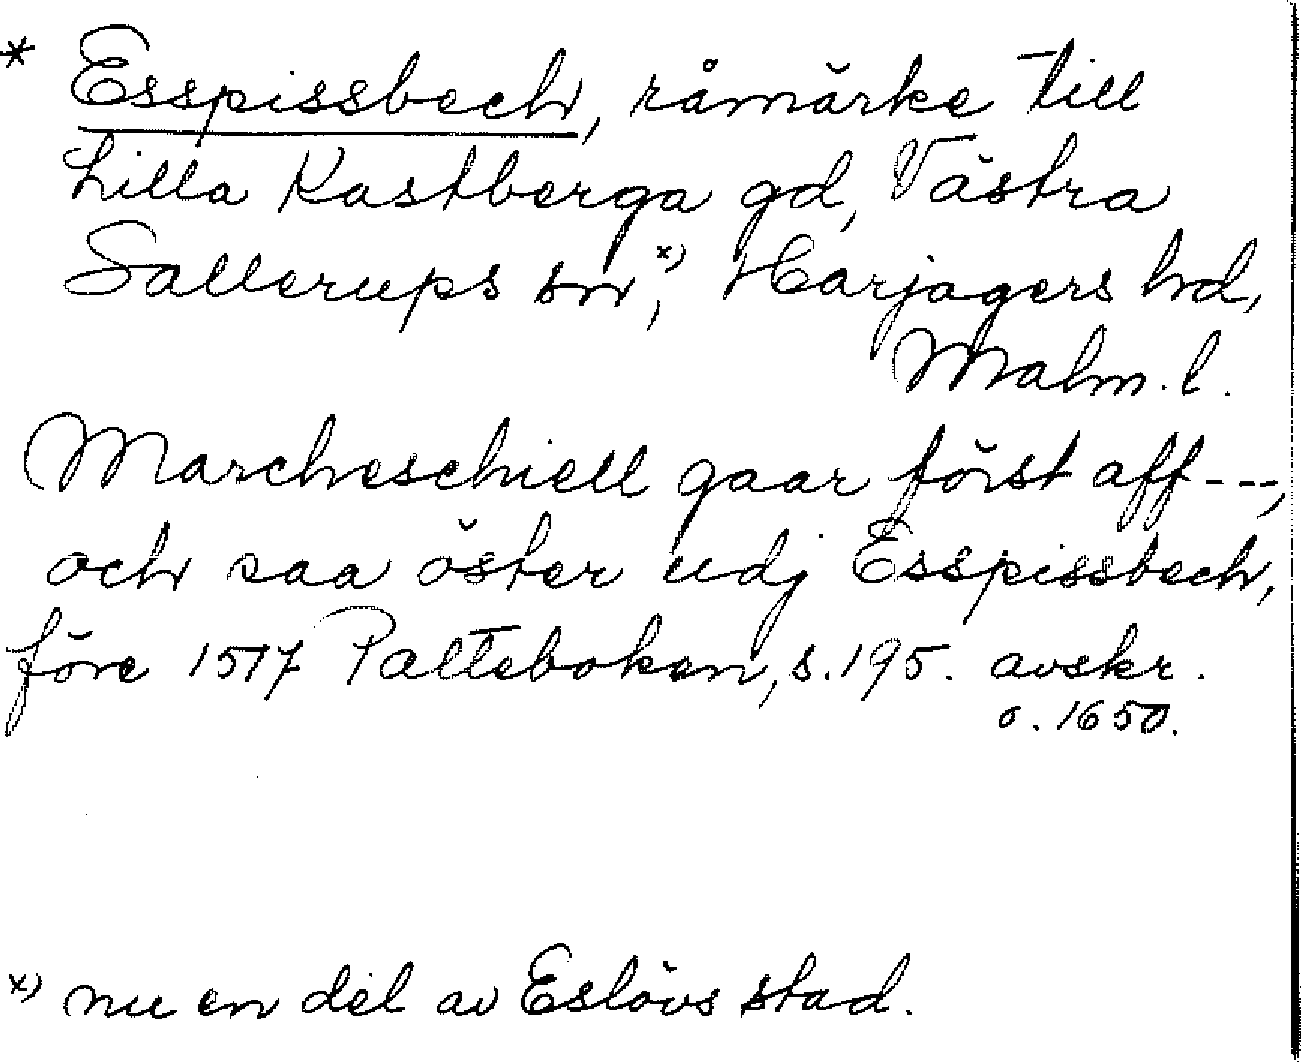 * Esspissbech, råmärke till
Lilla Kastberga gd, Västra
Sallerups sn,x) Harjagers hd,
Malm. l.
Marcheschiell gaar först aff ---,
och saa öster udj Esspissbech,
före 1517 Palteboken, s. 195. avskr.
o. 1650.
x) nu en del av Eslövs stad.